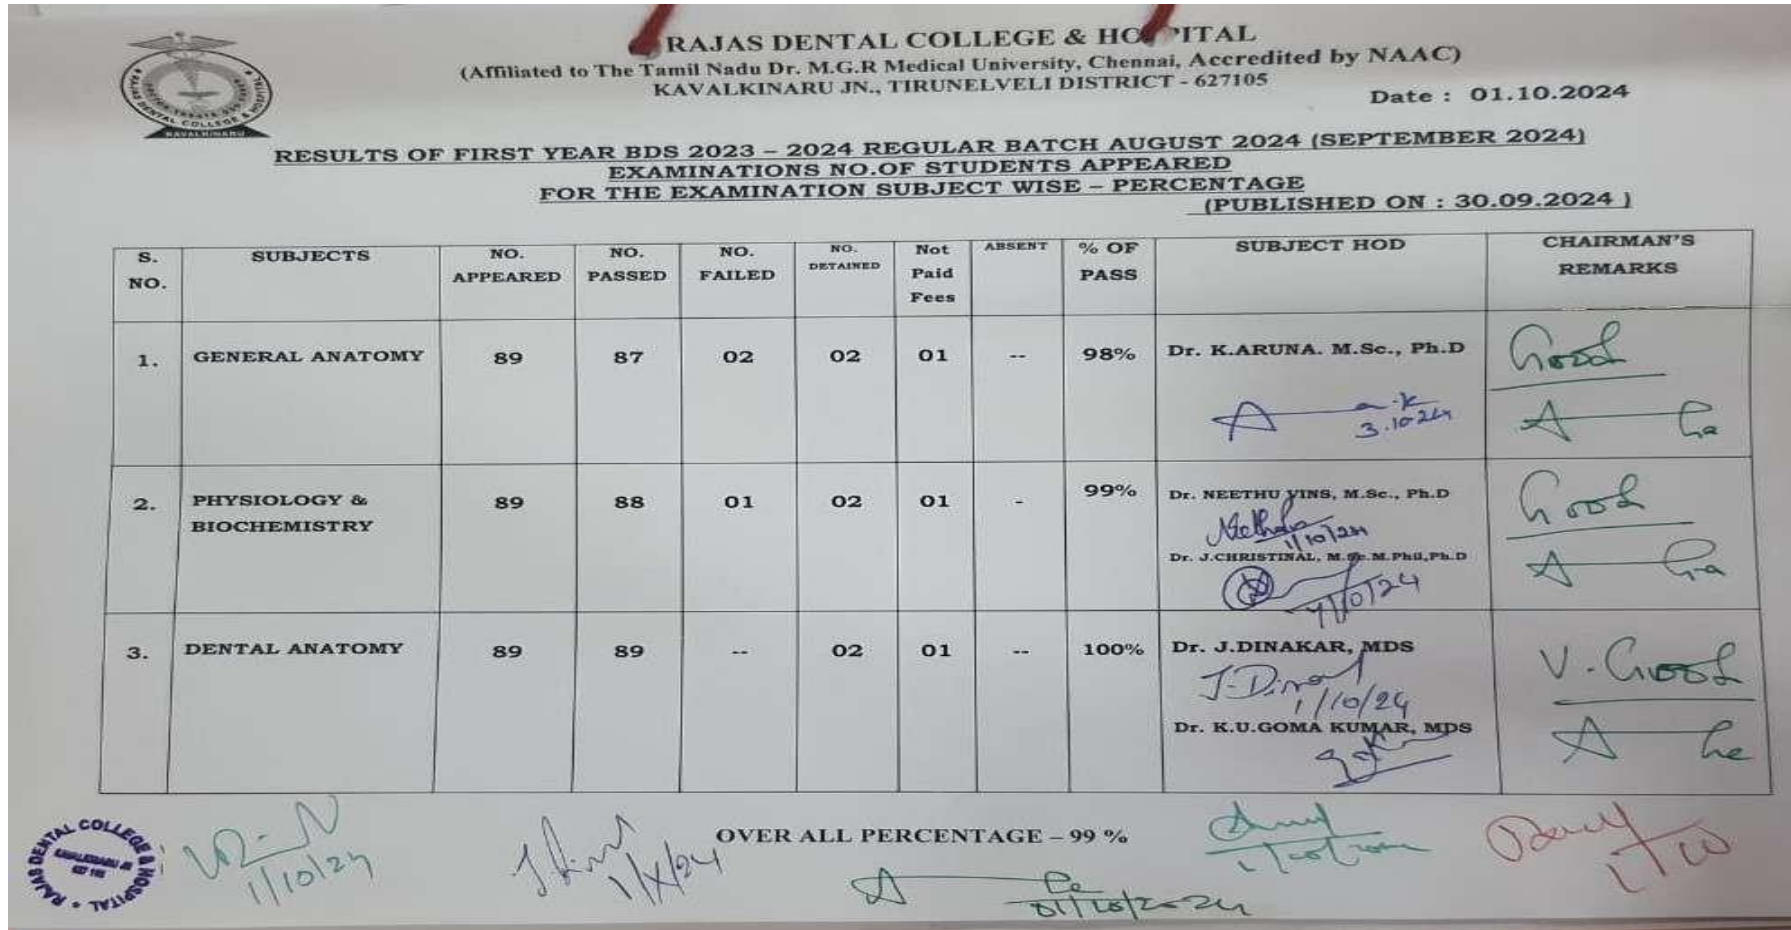 RAJAS DENTAL COLLEGE & HO PITAL
(Affiliated to The Tamil Nadu Dr. M.G.R Medical University, Chennai, Accredited by NAAC)
KAVALKINARU JN., TIRUNELVELI DISTRICT - 627105
Date : 01.10.2024
KAVALKINARU
RESULTS OF FIRST YEAR BDS 2023 – 2024 REGULAR BATCH AUGUST 2024 (SEPTEMBER 2024)
EXAMINATIONS NO.OF STUDENTS APPEARED
FOR THE EXAMINATION SUBJECT WISE – PERCENTAGE
(PUBLISHED ON : 30.09.2024 )
S. NO. SUBJECTS NO. APPEARED NO. PASSED NO. FAILED NO. DETAINED Not Paid Fees ABSENT % OF PASS SUBJECT HOD CHAIRMAN'S REMARKS
1. GENERAL ANATOMY 89 87 02 02 01 -- 98% Dr. K.ARUNA. M.Sc., Ph.D Good
3.10.24
2. PHYSIOLOGY & BIOCHEMISTRY 89 88 01 02 01 - 99% Dr. NEETHU VINS, M.Sc., Ph.D Good
1/10/24
Dr. J.CHRISTINAL, M.Sc.M.Phil,Ph.D
1/10/24
3. DENTAL ANATOMY 89 89 -- 02 01 -- 100% Dr. J.DINAKAR, MDS V. Good
1/10/24
Dr. K.U.GOMA KUMAR, MDS
OVER ALL PERCENTAGE – 99 %
1/10/24
1/X/24
01/10/2024
RAJAS DENTAL COLLEGE & HOSPITAL